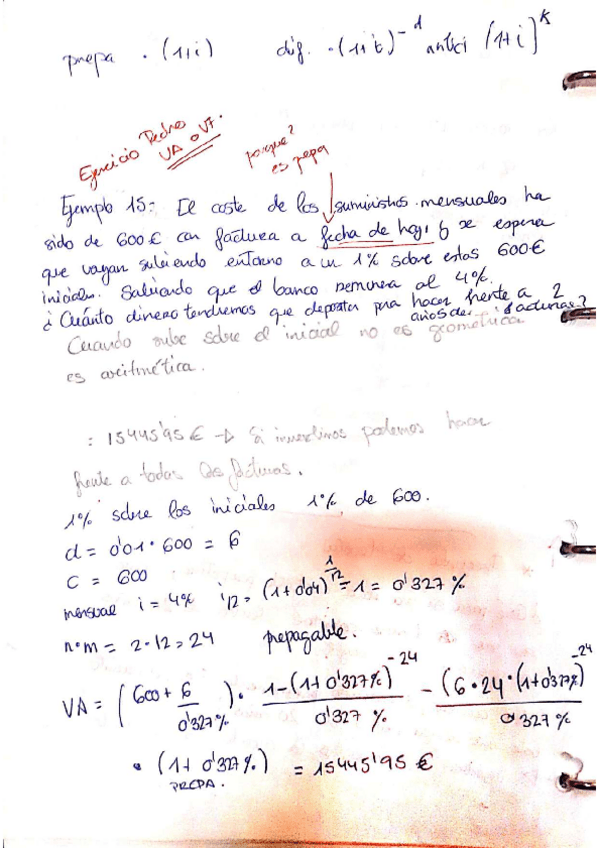 prepa · (1+i) dif. · (1+i)⁻¹ antici (1+i)ᵏ
Ejercicio Pedro
VA o VF.
porque?
es prepa
Ejemplo 15: El coste de los suministros mensuales ha
sido de 600€ con factura a fecha de hoy, y se espera
que vayan subiendo entorno a un 1% sobre estos 600€
iniciales. Sabiendo que el banco remunera al 4%.
¿Cuánto dinero tendremos que depositar para hacer frente a 2
años de facturas?
Cuando sube sobre el inicial no es geométrica
es aritmética.
= 15445'95€ → Si invertimos podemos hacer
frente a todas las facturas.
1% sobre los iniciales 1% de 600.
d = 0'01 · 600 = 6
C = 600
mensual i = 4% i₁₂ = (1+0'04)^(1/12) - 1 = 0'327%
n·m = 2·12 = 24 prepagable.
VA = (600 + 6/0'327%) · (1-(1+0'327%)⁻²⁴)/0'327% - (6·24·(1+0'327%)⁻²⁴)/0'327%
· (1+0'327%) = 15445'95 €
PREPA.